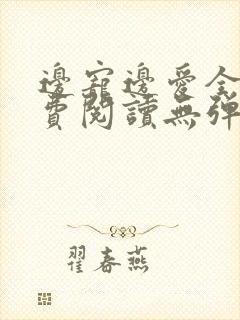 邊寵邊愛全
費閱讀無彈
翟春燕